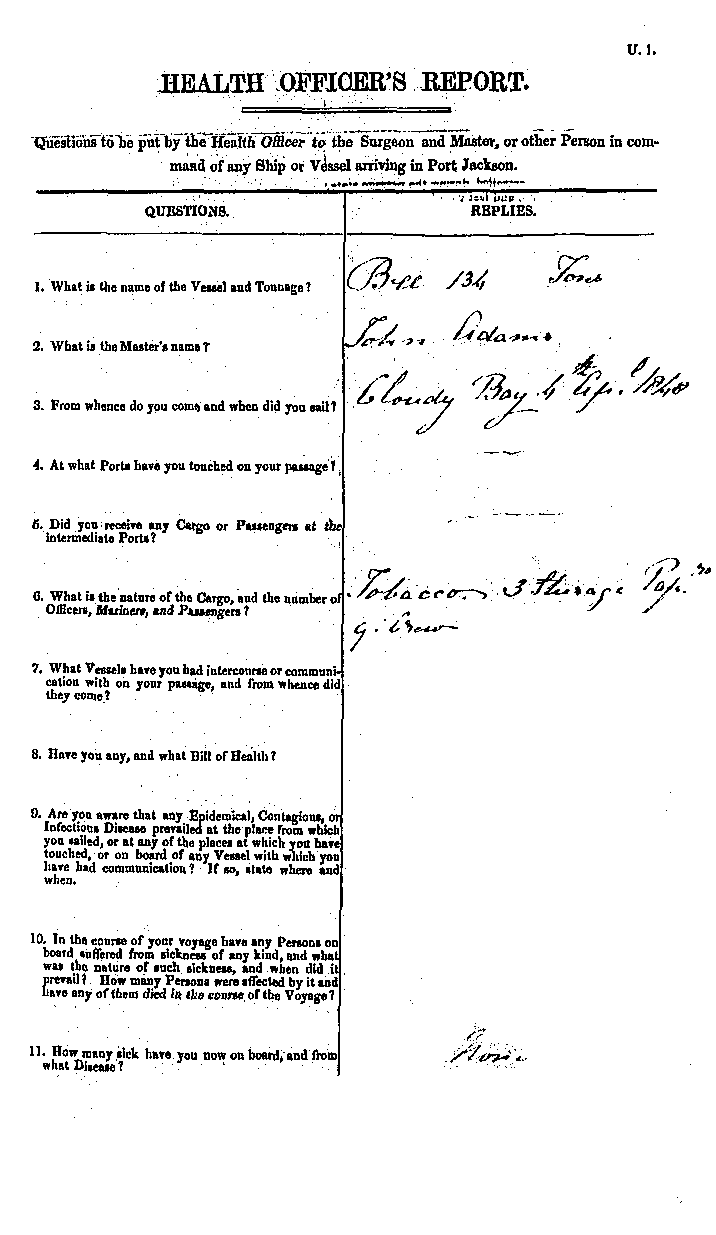 U. 1.
HEALTH OFFICER'S REPORT.
Questions to be put by the Health Officer to the Surgeon and Master, or other Person in com-
mand of any Ship or Vessel arriving in Port Jackson.
QUESTIONS. REPLIES.
1. What is the name of the Vessel and Tonnage? 134 Tons
2. What is the Master's name? John Adams
3. From whence do you come and when did you sail? Cloudy Bay 4th Apl. 1840
4. At what Ports have you touched on your passage? —
5. Did you receive any Cargo or Passengers at the —
intermediate Ports?
6. What is the nature of the Cargo, and the number of Tobacco 3 Steerage
Officers, Mariners, and Passengers? 9. Crew
7. What Vessels have you had intercourse or communi-
cation with on your passage, and from whence did
they come?
8. Have you any, and what Bill of Health?
9. Are you aware that any Epidemical, Contagious, or
Infectious Disease prevailed at the place from which
you sailed, or at any of the places at which you have
touched, or on board of any Vessel with which you
have had communication? If so, state where and
when.
10. In the course of your voyage have any Persons on
board suffered from sickness of any kind, and what
was the nature of such sickness, and when did it
prevail? How many Persons were affected by it and
have any of them died in the course of the Voyage?
11. How many sick have you now on board, and from None
what Disease?